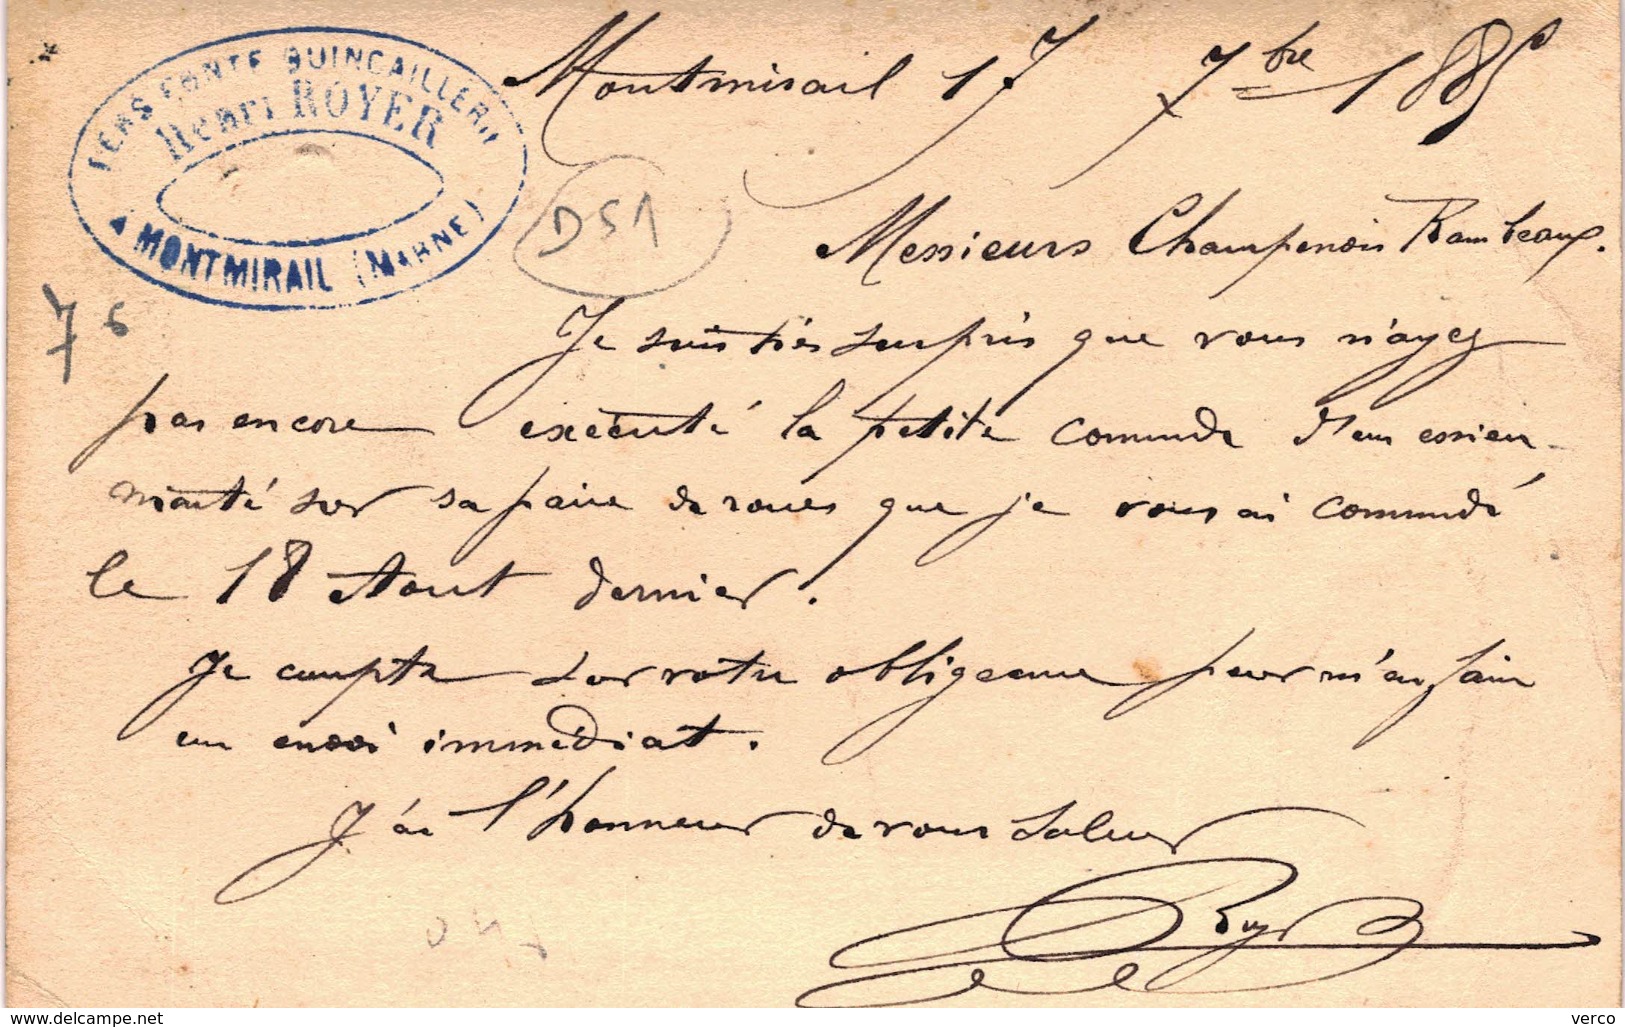 FERS FONTE QUINCAILLERIE
Henri ROYER
A MONTMIRAIL (MARNE)
Montmirail 17 7bre 1885
DS1
Messieurs Champenois Rambeaux.
76
Je suis très surpris que vous n'ayez
pas encore exécuté la petite commande d'un essieu
monté sur sa paire de roues que je vous ai commandé
le 18 Aout dernier.
Je compte sur votre obligeance pour m'en faire
un envoi immédiat.
J'ai l'honneur de vous saluer
Royer
www.delcampe.net
verco